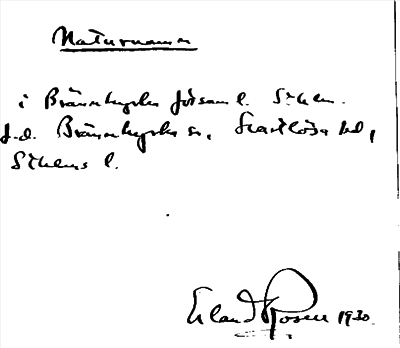 Naturnamn
i Brännkyrka församl. Sthlm.
f.d. Brännkyrka sn, Svartlösa hd,
Sthlms l.
Erland Rosell 1930.